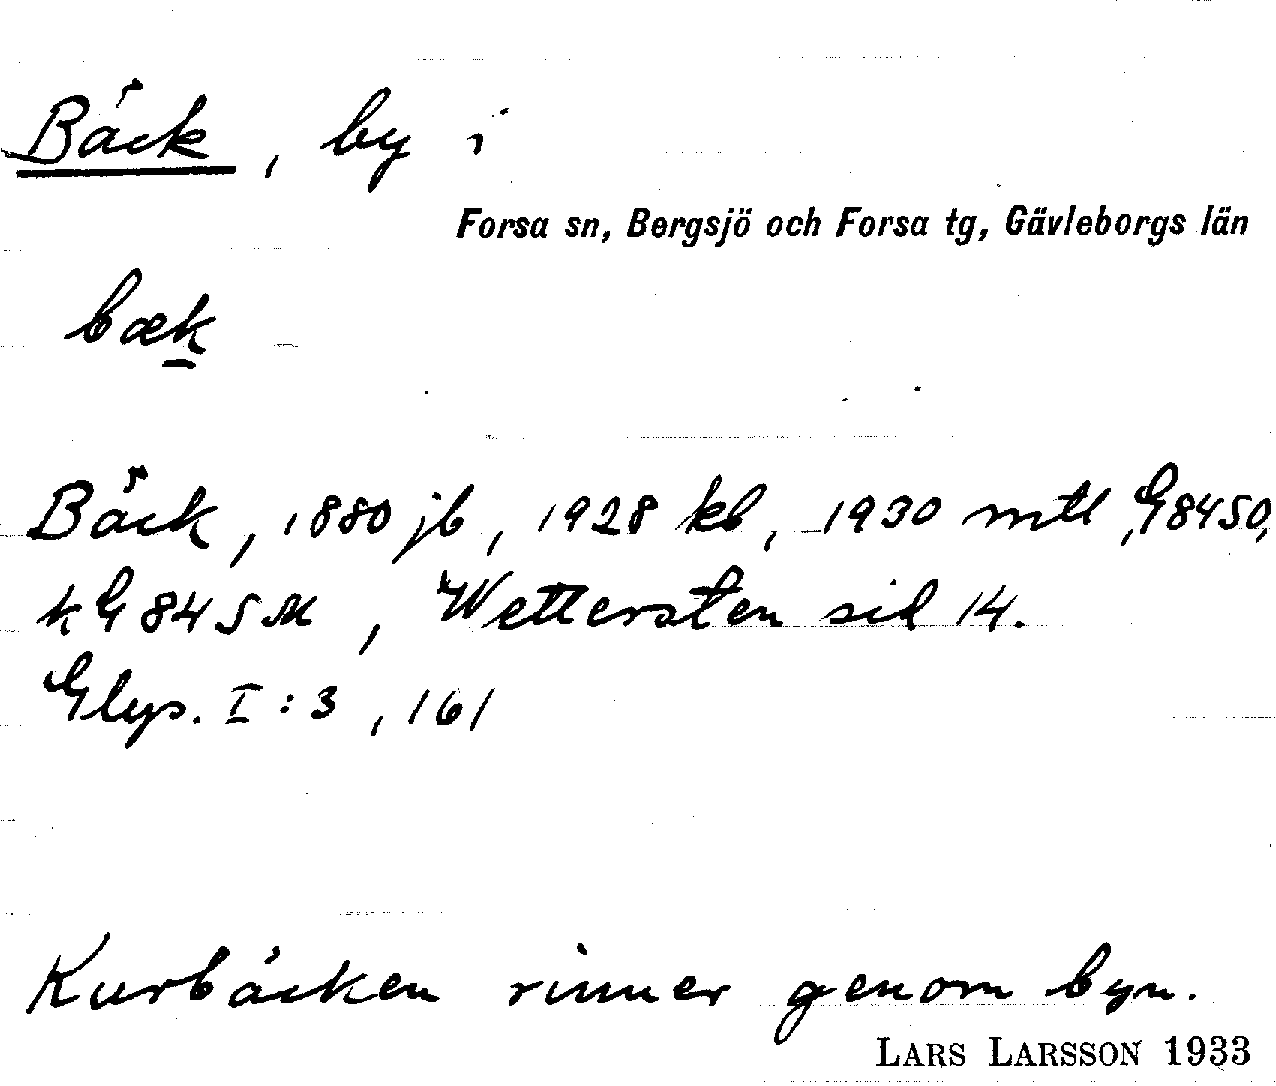 Bäck, by i
Forsa sn, Bergsjö och Forsa tg, Gävleborgs län
bæk
Bäck, 1880 jb, 1928 kb, 1930 mtl, G84SO,
kG84SM, Wettersten sid 14.
Glys. I:3, 161
Kurbäcken rinner genom byn.
LARS LARSSON 1933